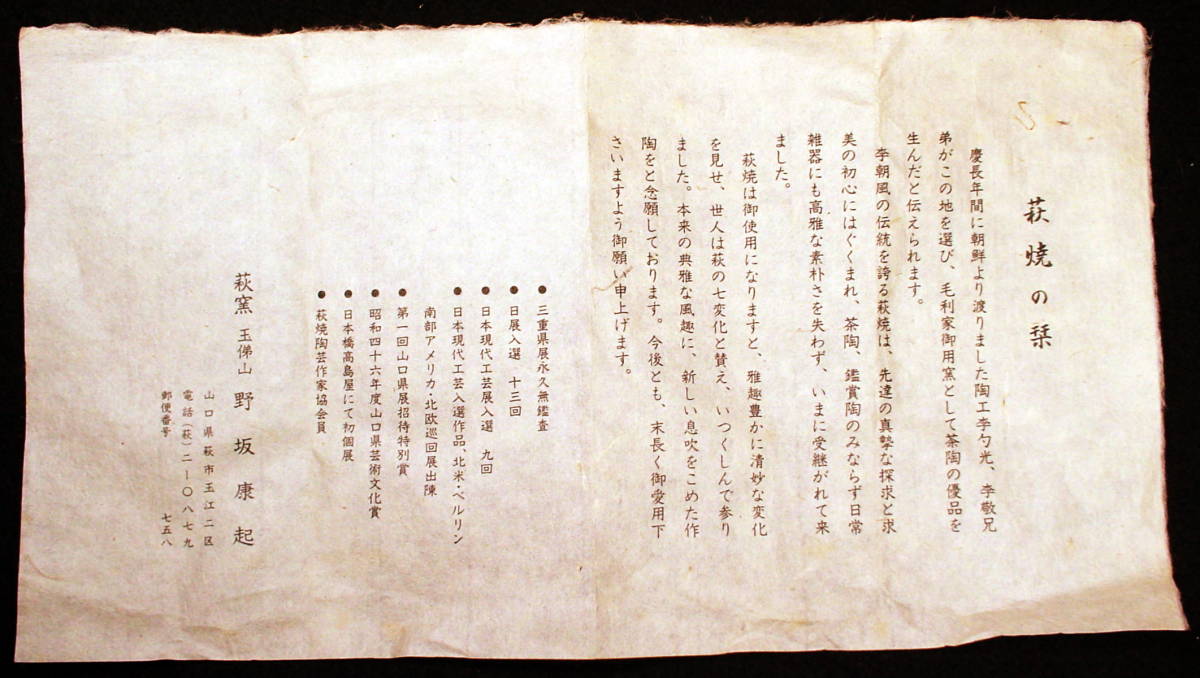 萩焼の栞
慶長年間に朝鮮より渡りました陶工李勺光、李敬兄
弟がこの地を選び、毛利家御用窯として茶陶の優品を
生んだと伝えられます。
李朝風の伝統を誇る萩焼は、先達の真摯な探求と求
美の初心にはぐくまれ、茶陶、鑑賞陶のみならず日常
雑器にも高雅な素朴さを失わず、いまに受継がれて来
ました。
萩焼は御使用になりますと、雅趣豊かに清妙な変化
を見せ、世人は萩の七変化と賛え、いつくしんで参り
ました。本来の典雅な風趣に、新しい息吹をこめた作
陶をと念願しております。今後とも、末長く御愛用下
さいますよう御願い申上げます。
●三重県展永久無鑑査
●日展入選 十三回
●日本現代工芸展入選 九回
●日本現代工芸入選作品、北米・ベルリン
南部アメリカ・北欧巡回展出陳
●第一回山口県展招待特別賞
●昭和四十六年度山口県芸術文化賞
●日本橋高島屋にて初個展
●萩焼陶芸作家協会員
萩窯 玉佛山 野坂康起
山口県萩市玉江二区
電話(萩)二―〇八七九
郵便番号 七五八